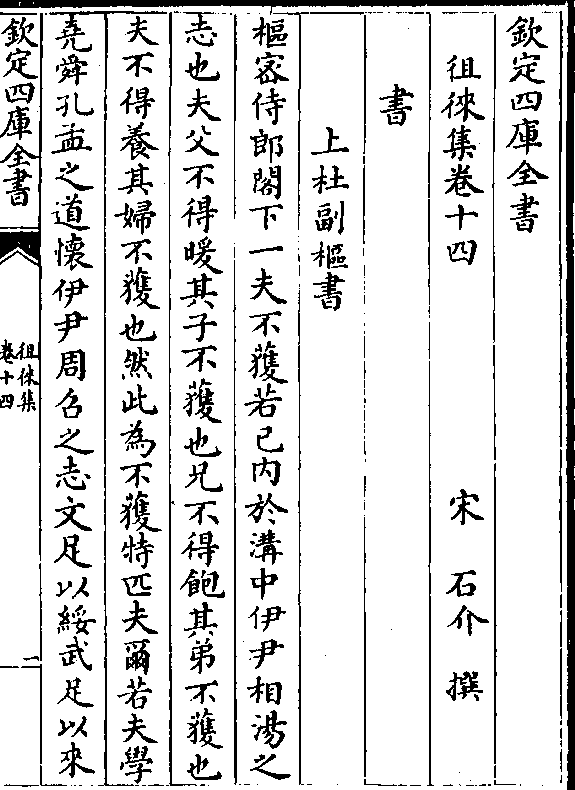 欽定四庫全書
徂徠集卷十四
宋 石介 撰
書
上杜副樞書
樞密侍郎閣下一夫不獲若已内於溝中伊尹相湯之
志也夫父不得暖其子不獲也兄不得飽其弟不獲也
夫不得養其婦不獲也然此為不獲特匹夫爾若夫學
堯舜孔孟之道懷伊尹周召之志文足以綏武足以來
欽定四庫全書
徂徠集
卷十四
一